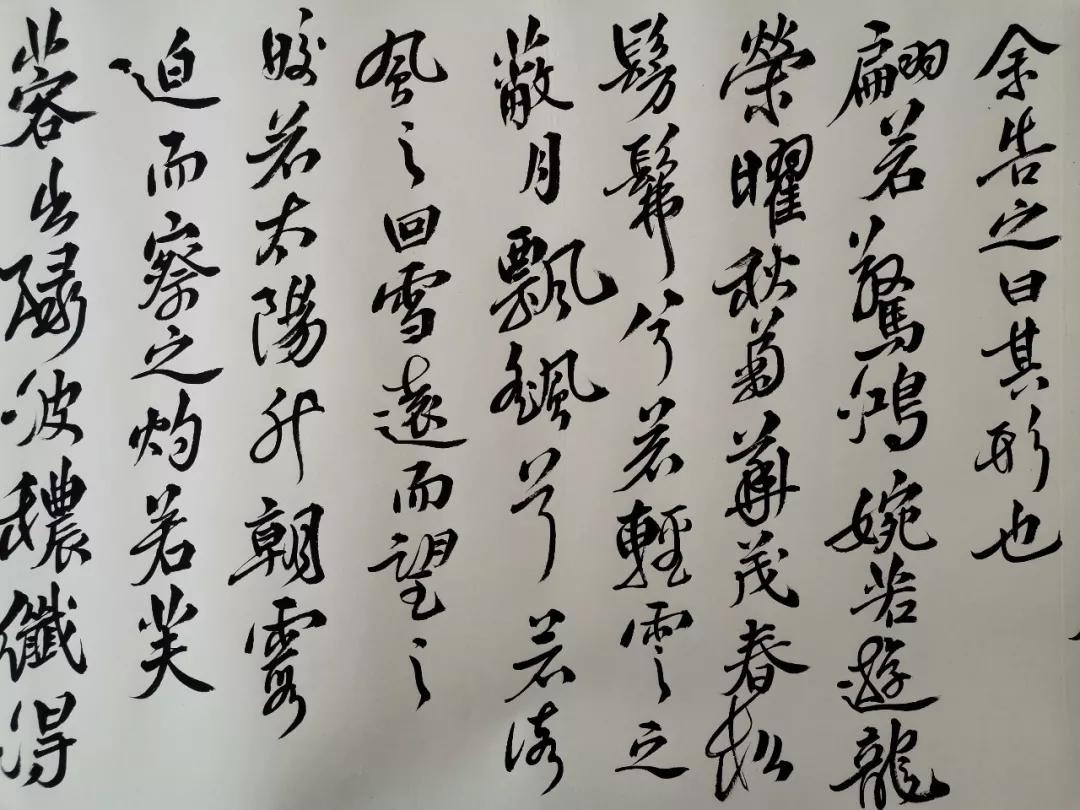 余告之曰其形也
翩若驚鴻婉若遊龍
榮曜秋菊華茂春松
髣髴兮若輕雲之
蔽月飄颻兮若流
風之回雪遠而望之
皎若太陽升朝霞
迫而察之灼若芙
蓉出綠波穠纖得